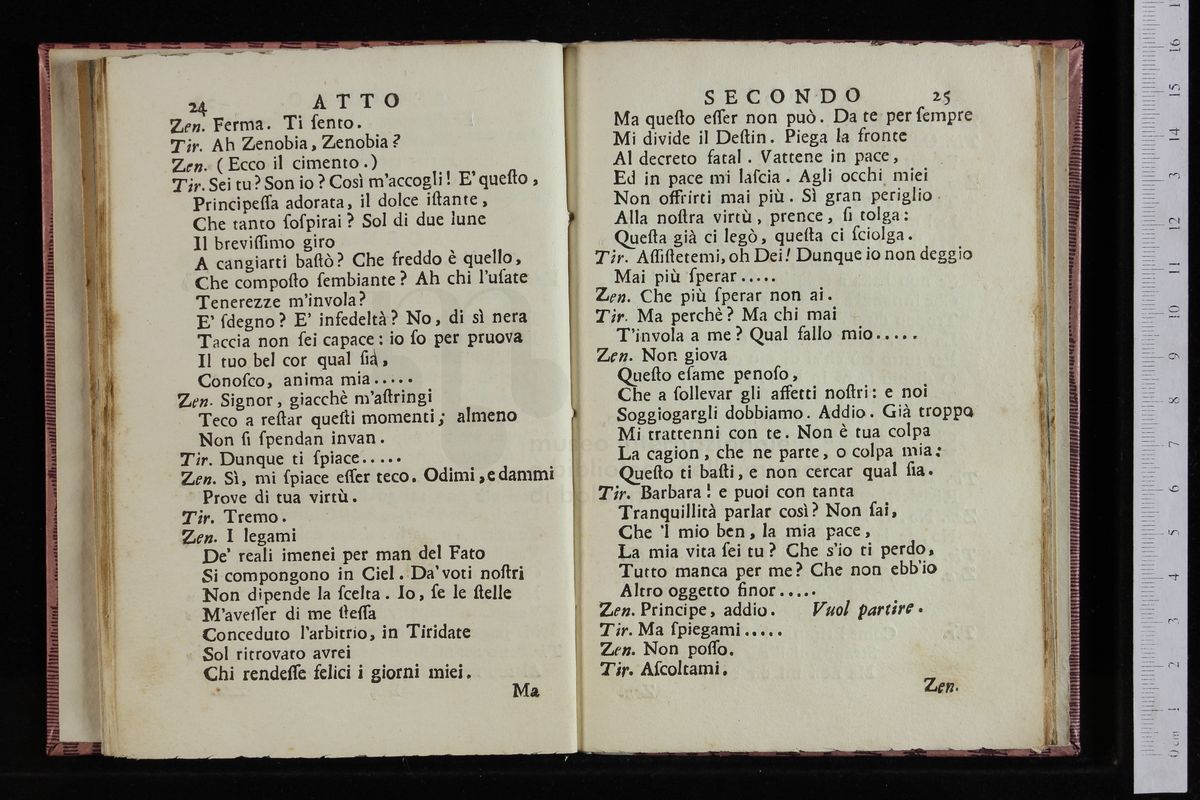 24 ATTO
Zen. Ferma. Ti ſento.
Tir. Ah Zenobia, Zenobia?
Zen. (Ecco il cimento.)
Tir. Sei tu? Son io? Così m'accogli! E' queſto,
Principeſſa adorata, il dolce iſtante,
Che tanto ſoſpirai? Sol di due lune
Il breviſſimo giro
A cangiarti baſtò? Che freddo è quello,
Che compoſto ſembiante? Ah chi l'uſate
Tenerezze m'invola?
E' ſdegno? E' infedeltà? No, di sì nera
Taccia non ſei capace: io ſo per pruova
Il tuo bel cor qual ſia,
Conoſco, anima mia.....
Zen. Signor, giacchè m'aſtringi
Teco a reſtar queſti momenti; almeno
Non ſi ſpendan invan.
Tir. Dunque ti ſpiace.....
Zen. Sì, mi ſpiace eſſer teco. Odimi, e dammi
Prove di tua virtù.
Tir. Tremo.
Zen. I legami
De' reali imenei per man del Fato
Si compongono in Ciel. Da' voti noſtri
Non dipende la ſcelta. Io, ſe le ſtelle
M'aveſſer di me ſteſſa
Conceduto l'arbitrio, in Tiridate
Sol ritrovato avrei
Chi rendeſſe felici i giorni miei.
Ma
SECONDO 25
Ma queſto eſſer non può. Da te per ſempre
Mi divide il Deſtin. Piega la fronte
Al decreto fatal. Vattene in pace,
Ed in pace mi laſcia. Agli occhi miei
Non offrirti mai più. Sì gran periglio
Alla noſtra virtù, prence, ſi tolga:
Queſta già ci legò, queſta ci ſciolga.
Tir. Aſſiſtetemi, oh Dei! Dunque io non deggio
Mai più ſperar.....
Zen. Che più ſperar non ai.
Tir. Ma perchè? Ma chi mai
T'invola a me? Qual fallo mio.....
Zen. Non giova
Queſto eſame penoſo,
Che a ſollevar gli affetti noſtri: e noi
Soggiogargli dobbiamo. Addio. Già troppo
Mi trattenni con te. Non è tua colpa
La cagion, che ne parte, o colpa mia:
Queſto ti baſti, e non cercar qual ſia.
Tir. Barbara! e puoi con tanta
Tranquillità parlar così? Non ſai,
Che 'l mio ben, la mia pace,
La mia vita ſei tu? Che s'io ti perdo,
Tutto manca per me? Che non ebb'io
Altro oggetto finor.....
Zen. Principe, addio. Vuol partire.
Tir. Ma ſpiegami.....
Zen. Non poſſo.
Tir. Aſcoltami.
Zen.